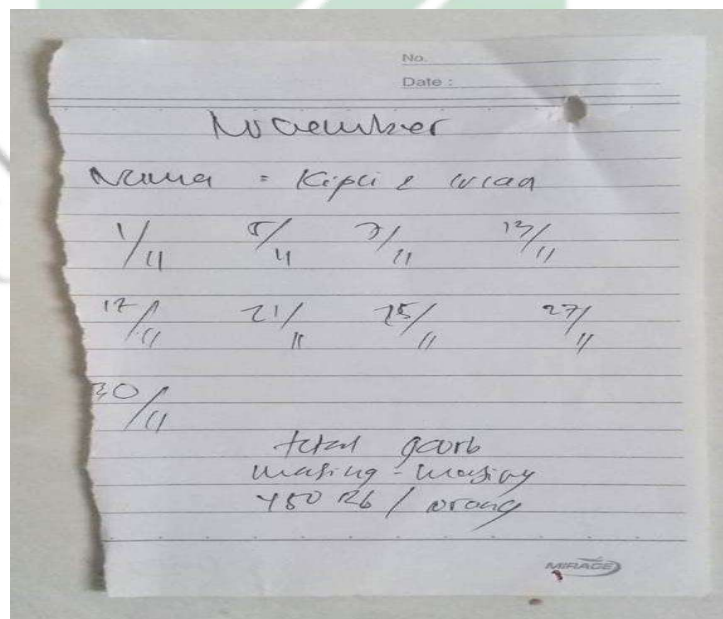 No.
Date :
November
Nama = Kipli &
1/11 5/11 7/11 13/11
17/11 21/11 25/11 27/11
30/11
total
masing-masing
450 Rb / orang
MIRAGE